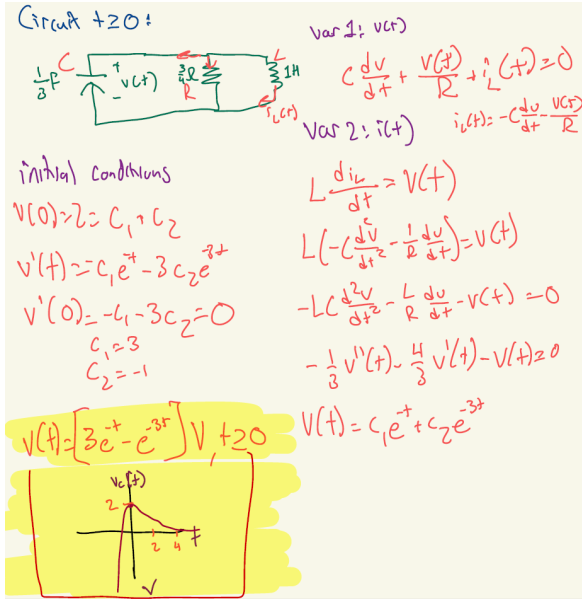 Circuit t≥0:
1/3 F C + v(t) - 3/4 Ω R L 1H
i_L(t)
initial conditions
V(0)=2=C₁+C₂
v'(t)=-c₁e^-t - 3c₂e^-3t
v'(0)=-c₁-3c₂=0
C₁=3
C₂=-1
v(t)=[3e^-t - e^-3t] V, t≥0
Vc(t)
2
2 4 t
V
Var 1: v(t)
C dv/dt + v(t)/R + i_L(t)=0
i_L(t)=-C dv/dt - v(t)/R
Var 2: i(t)
L di_L/dt = V(t)
L(-C d²v/dt² - 1/R dv/dt)=v(t)
-LC d²v/dt² - L/R dv/dt - v(t)=0
-1/3 v''(t) - 4/3 v'(t) - v(t)=0
V(t)=c₁e^-t + c₂e^-3t